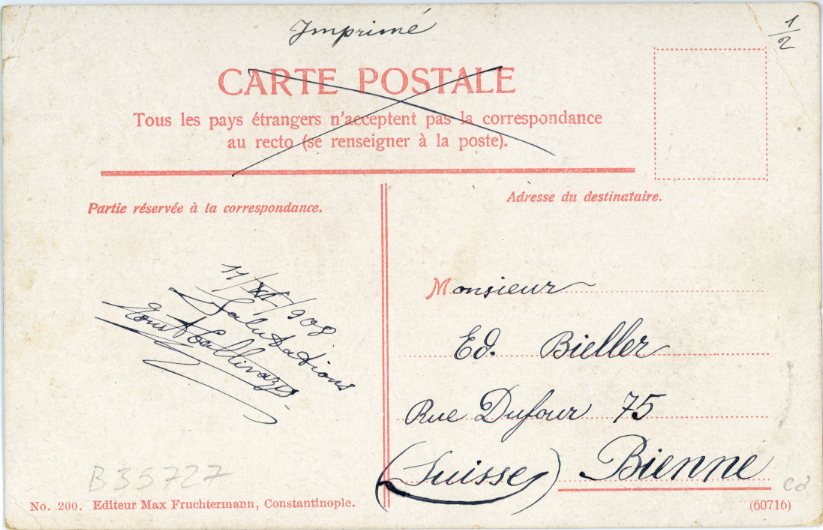 Imprimé
1/2
CARTE POSTALE
Tous les pays étrangers n'acceptent pas la correspondance
au recto (se renseigner à la poste).
Partie réservée à la correspondance.
11/XI/908
Salutations
Adresse du destinataire.
Monsieur
Ed. Bieller
Rue Dufour 75
(Suisse) Bienne
B35727
ed
No. 200. Editeur Max Fruchtermann, Constantinople.
(60716)